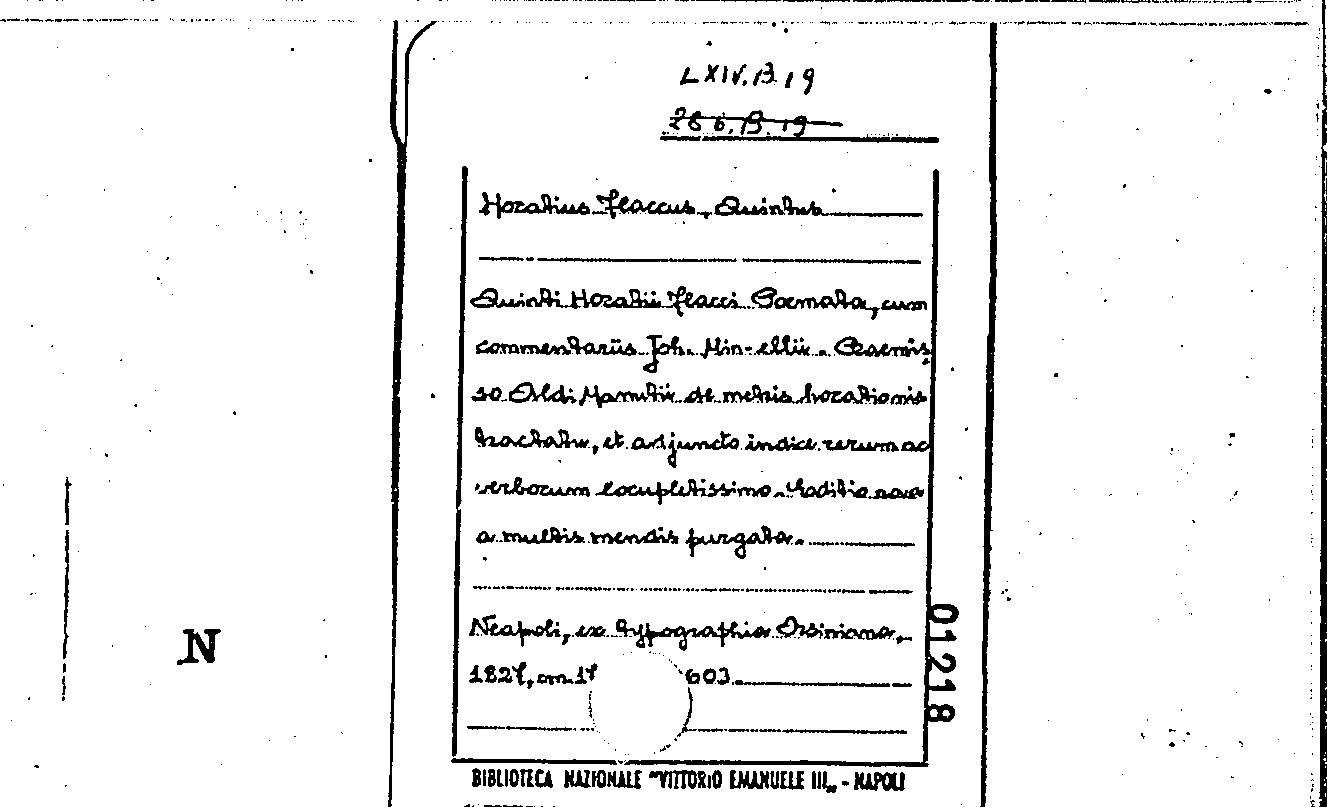 LXIV.B.19
286.B.19
Horatius Flaccus, Quintus
Quinti Horatii Flacci Poemata, cum
commentariis Joh. Min-ellii. Praemis
so Aldi Manutii de metris horationis
tractatu, et adjuncto indice rerum ac
verborum locupletissimo. Editio nova
a multis mendis purgata.
Neapoli, ex typographia Ursiniana,
1827, cm.17 603
01218
N
BIBLIOTECA NAZIONALE "VITTORIO EMANUELE III„ - NAPOLI